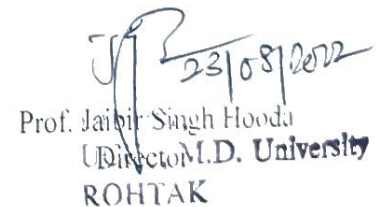 23/08/2022
Prof. Jaibir Singh Hooda
Director M.D. University
ROHTAK